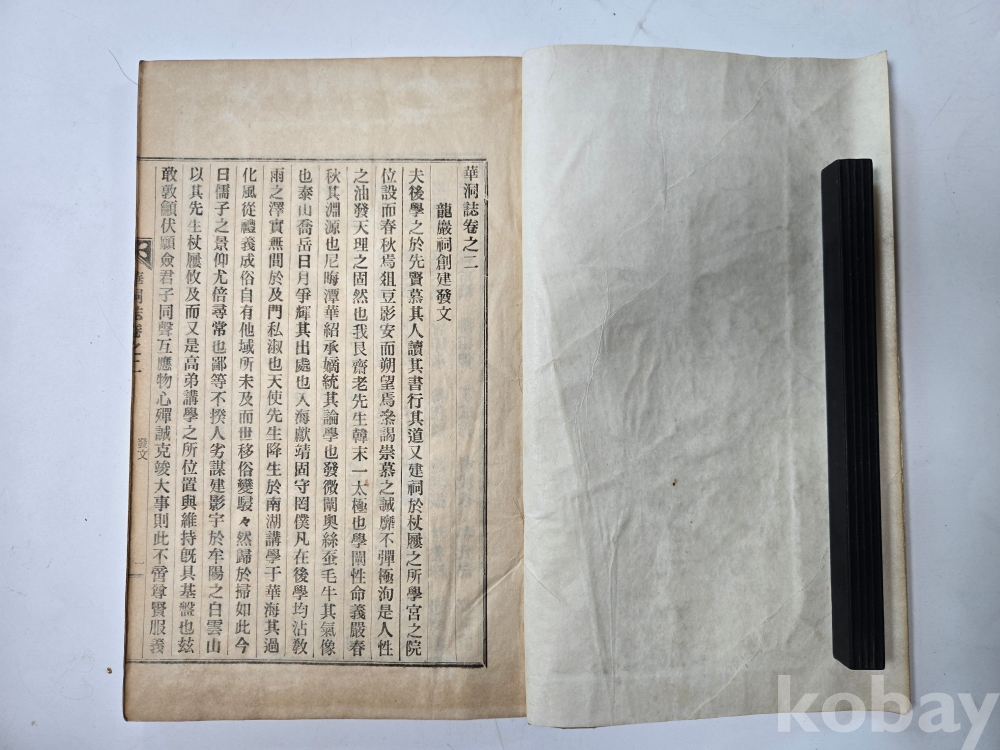 華洞誌卷之二
龍巖祠創建發文
夫後學之於先賢慕其人讀其書行其道又建祠於杖屨之所學宮之院
位設而春秋焉俎豆影安而朔望焉叅謁崇慕之誠靡不彈極洵是人性
之油發天理之固然也我艮齋老先生韓末一太極也學闡性命義嚴春
秋其淵源也尼晦潭華紹承嫡統其論學也發微闡奧絲蚕毛牛其氣像
也泰山喬岳日月爭輝其出處也入海獻靖固守罔僕凡在後學均沾敎
雨之澤實無間於及門私淑也天使先生降生於南湖講學于華海其過
化風從禮義成俗自有他域所未及而世移俗變駸々然歸於掃如此今
日儒子之景仰尤倍尋常也鄙等不揆人劣謀建影宇於牟陽之白雲山
以其先生杖屨攸及而又是高弟講學之所位置與維持旣具基盤也玆
敢敦籲伏願僉君子同聲互應物心殫誠克竣大事則此不啻尊賢服義
華洞誌卷之二
發文
一
kobay